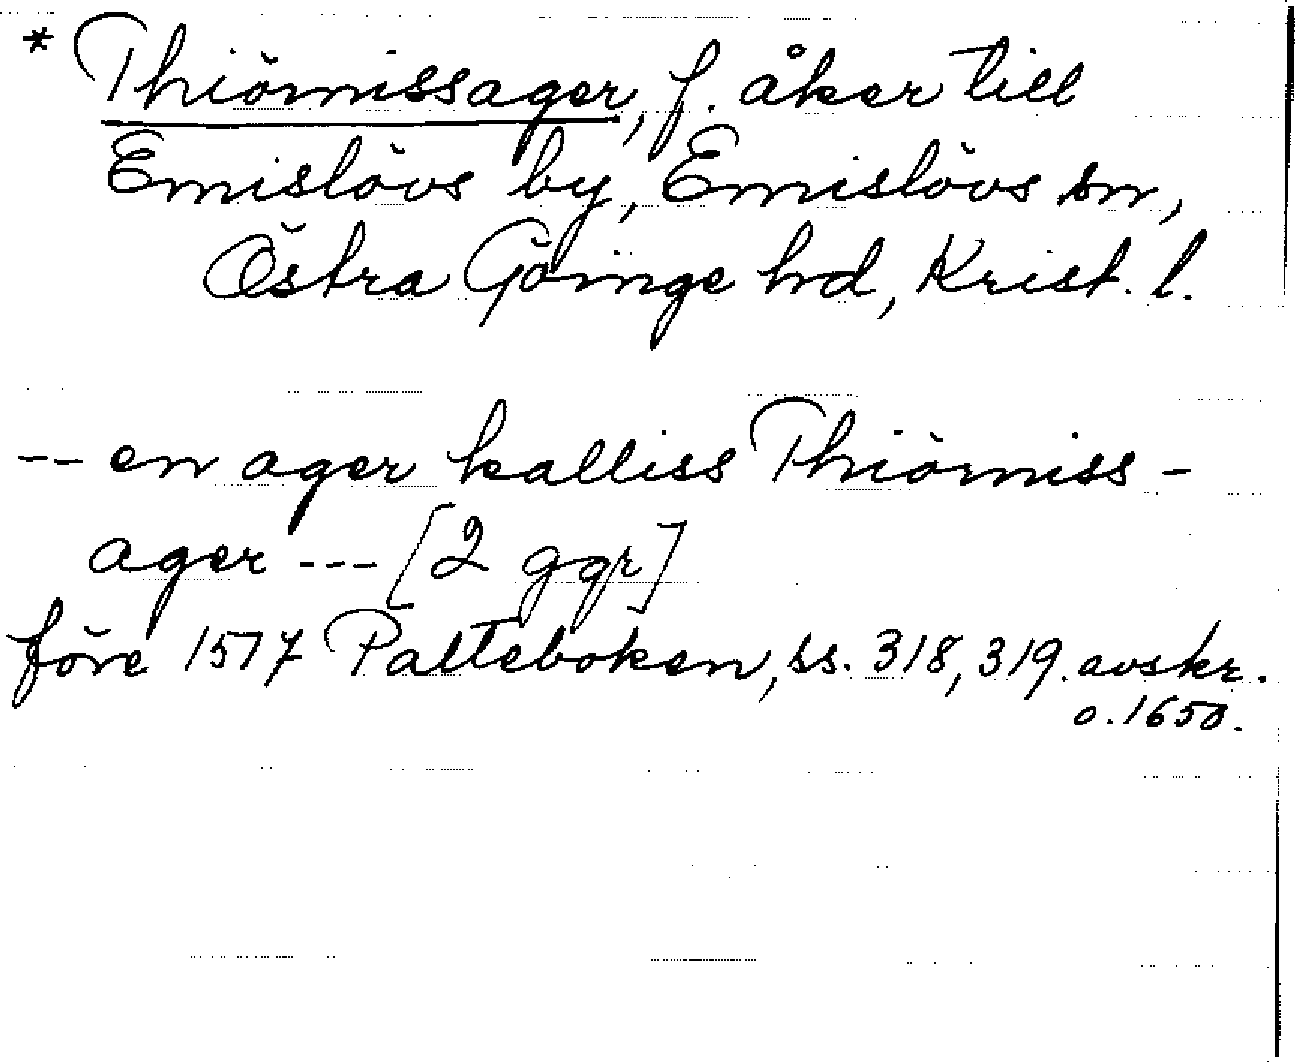 * Thiörnissager, f. åker till
Emislövs by, Emislövs sn,
Östra Göinge hd, Krist. l.
-- en ager kalliss Thiörniss-
ager --- [2 ggr]
före 1517 Palteboken, ss. 318, 319. avskr.
o. 1650.